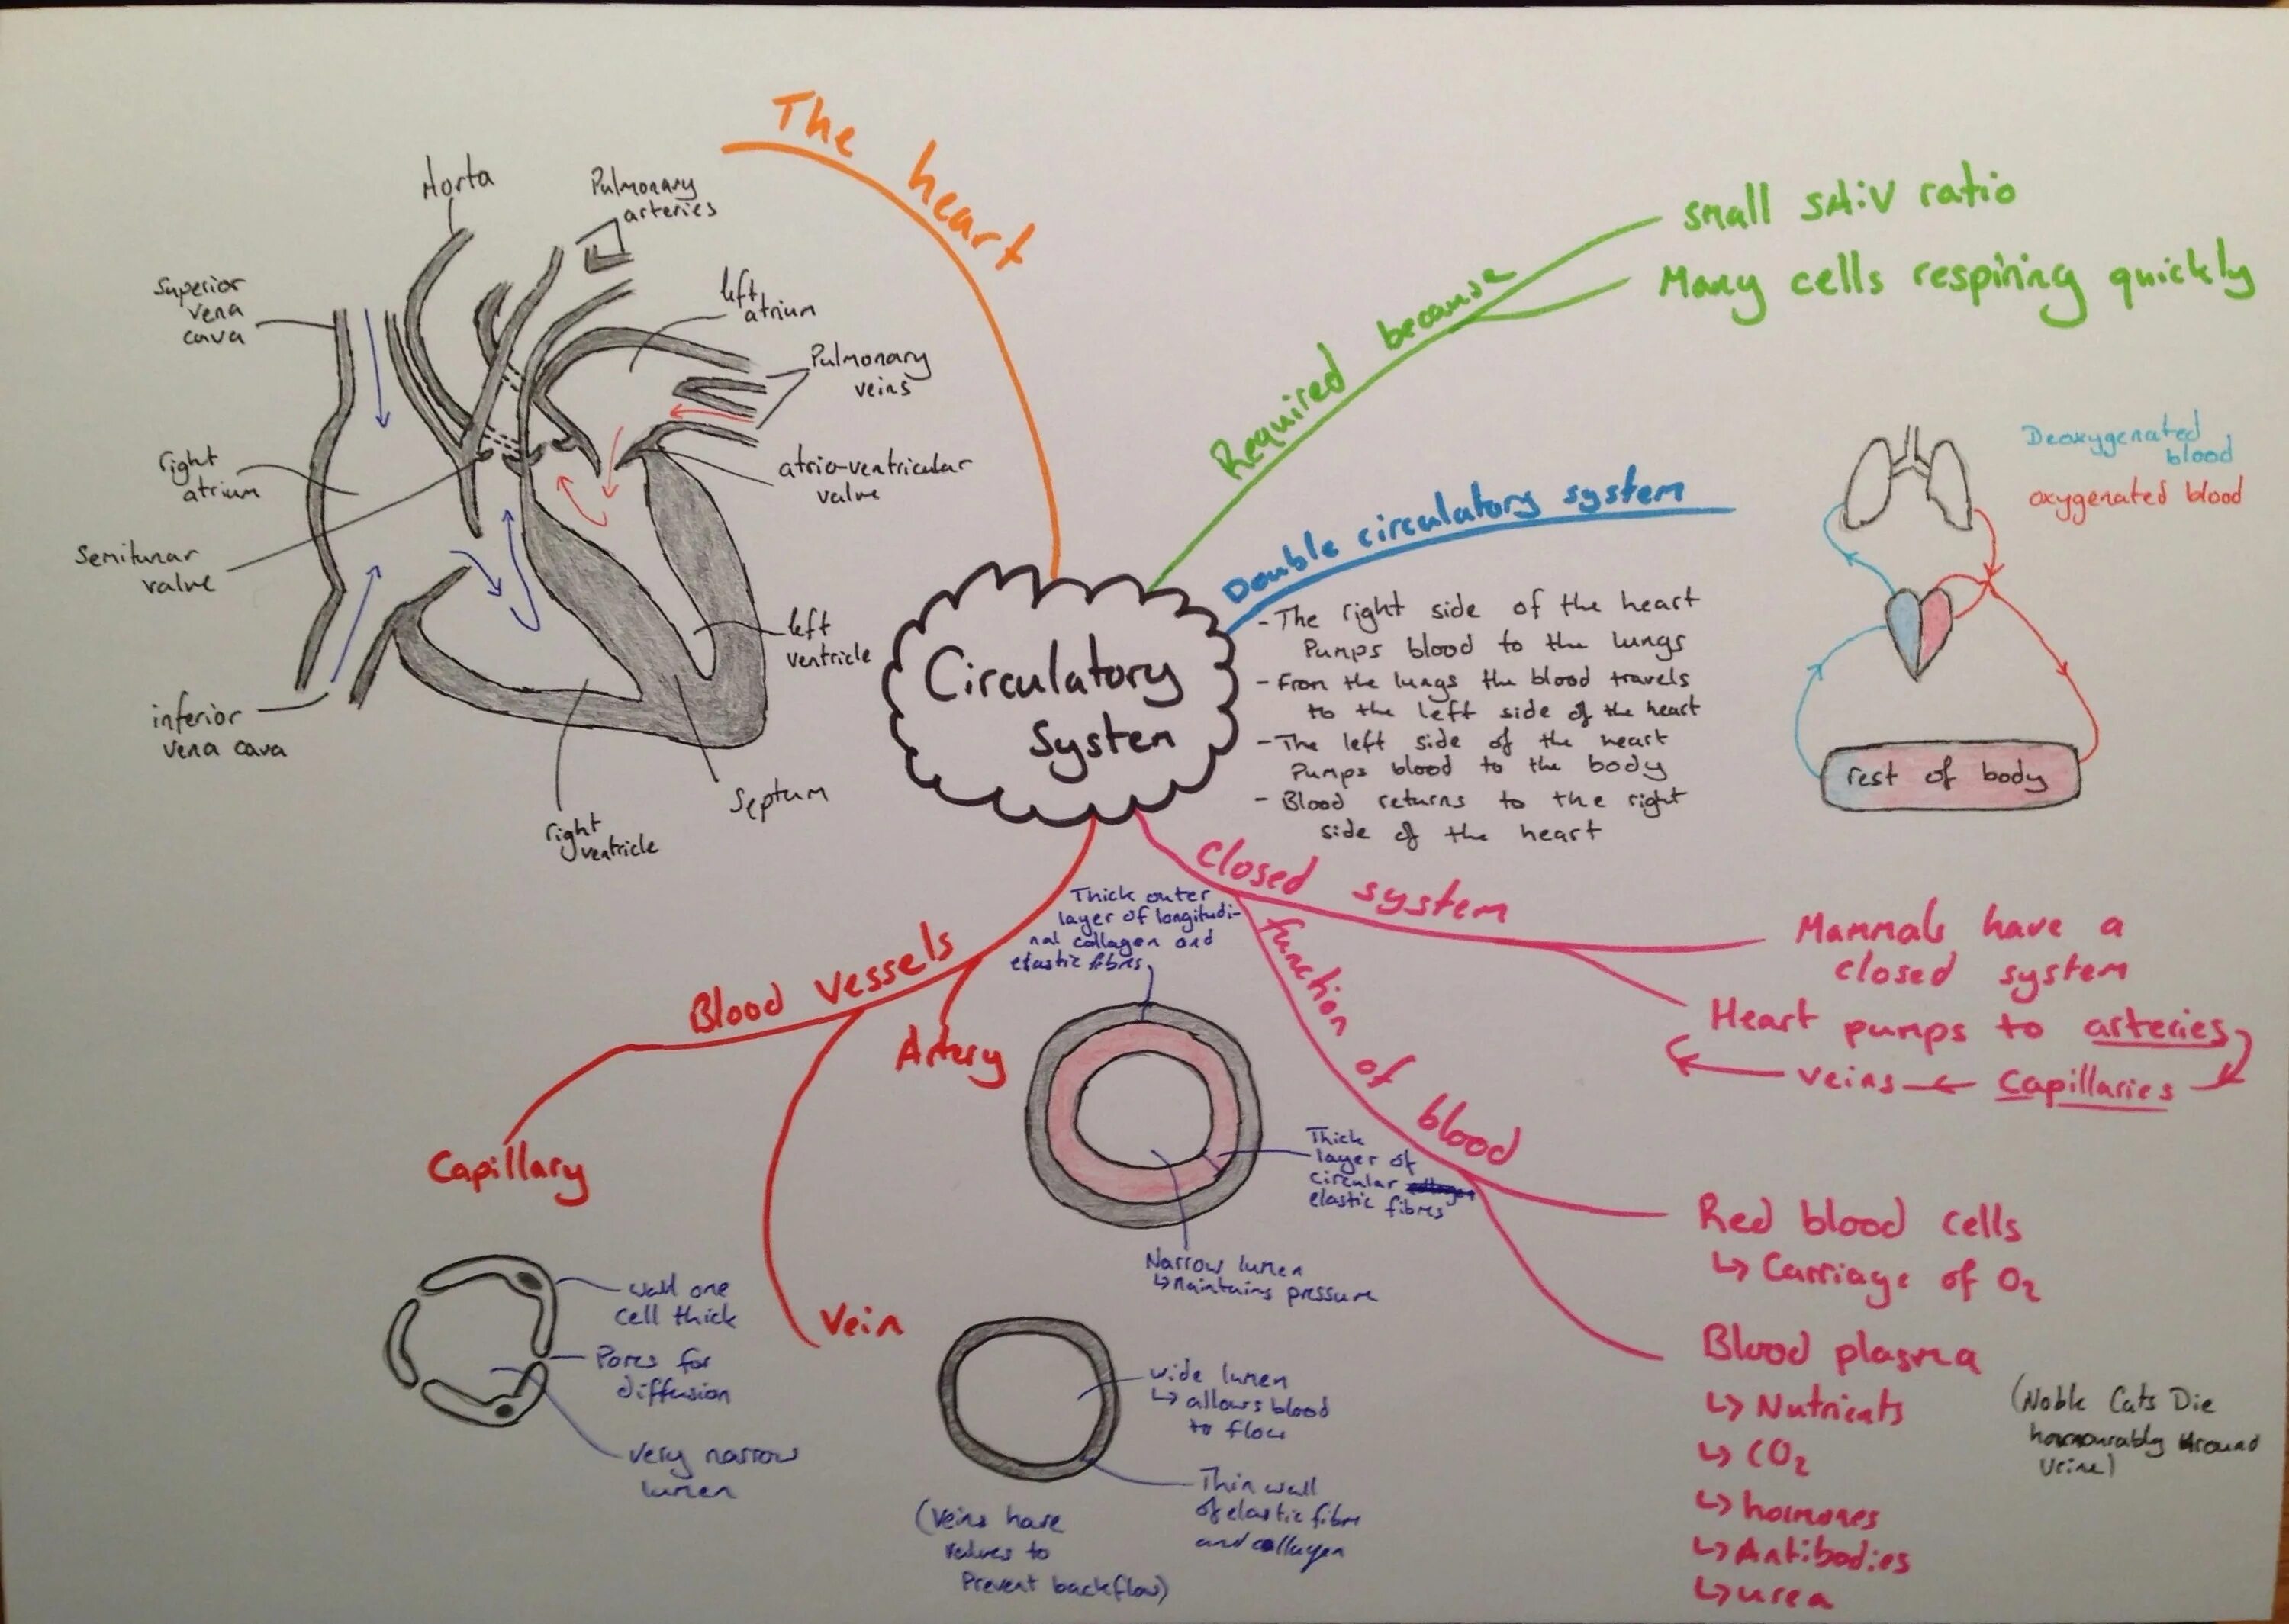 The heart
Aorta
Pulmonary
arteries
Superior
vena
cava
left
atrium
Pulmonary
veins
right
atrium
atrio-ventricular
valve
Semilunar
valve
left
ventricle
inferior
vena cava
Septum
right
ventricle
Circulatory
System
Required because
small SA:V ratio
Many cells respiring quickly
Double circulatory system
- The right side of the heart
Pumps blood to the lungs
- From the lungs the blood travels
to the left side of the heart
- The left side of the heart
Pumps blood to the body
- Blood returns to the right
side of the heart
Deoxygenated
blood
oxygenated blood
rest of body
closed system
Mammals have a
closed system
Heart pumps to arteries
veins ← Capillaries
function of blood
Red blood cells
↳ Carriage of O₂
Blood plasma
↳ Nutrients
↳ CO₂
↳ hormones
↳ Antibodies
↳ urea
(Noble Cats Die
honourably Around
Urine)
Blood vessels
Artery
Thick outer
layer of longitudi-
nal collagen and
elastic fibres
Thick
layer of
circular
elastic fibres
Narrow lumen
↳ maintains pressure
Capillary
wall one
cell thick
Pores for
diffusion
very narrow
lumen
Vein
wide lumen
↳ allows blood
to flow
Thin wall
of elastic fibre
and collagen
(Veins have
valves to
Prevent backflow)